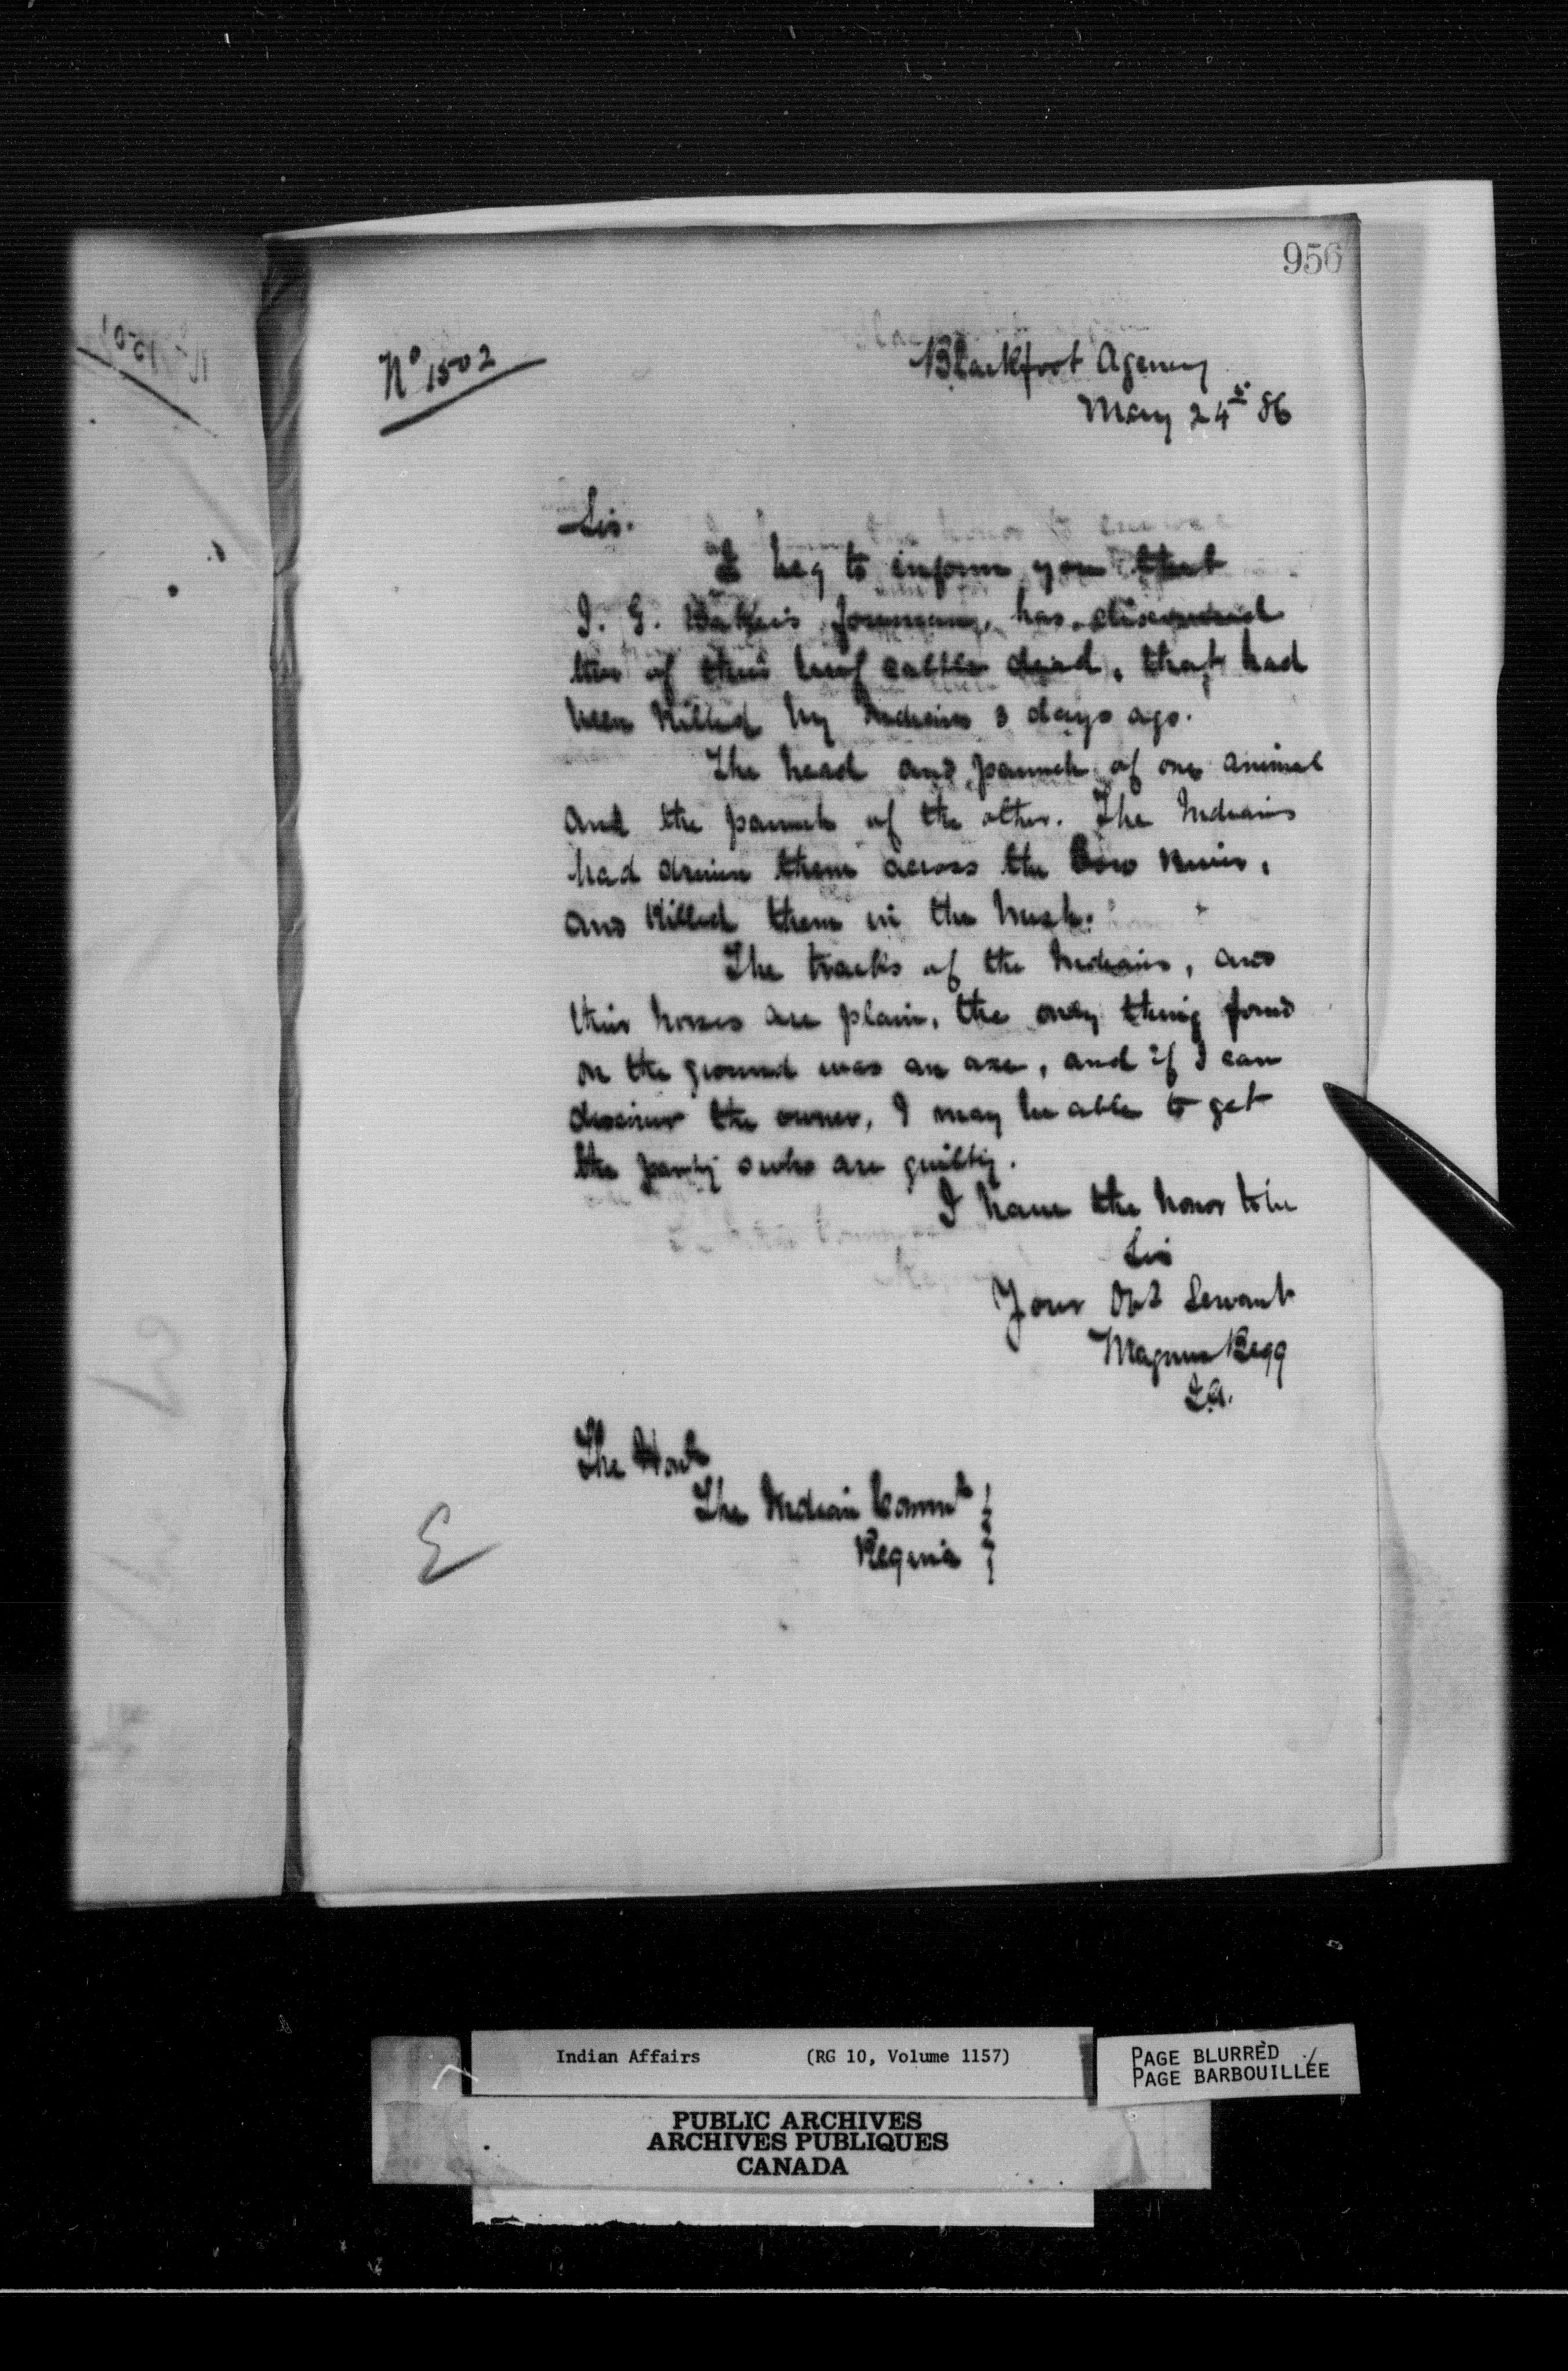 956
No 1502
Blackfoot Agency
May 24th 86
Sir.
I beg to inform you that
I. G. Baker's foreman, has discovered
two of their beef cattle dead, that had
been Killed by Indians 3 days ago.
The head and paunch of one animal
and the paunch of the other. The Indians
had driven them across the Bow River,
and Killed them in the bush.
The tracks of the Indians, and
their horses are plain, the only thing found
on the ground was an axe, and if I can
discover the owner, I may be able to get
the party's who are guilty.
I have the honor to be
Sir
Your Obt Servant
Magnus Begg
I.A.
The Honb
The Indian Commr
Regina
Indian Affairs (RG 10, Volume 1157)
PAGE BLURRED
PAGE BARBOUILLÉE
PUBLIC ARCHIVES
ARCHIVES PUBLIQUES
CANADA